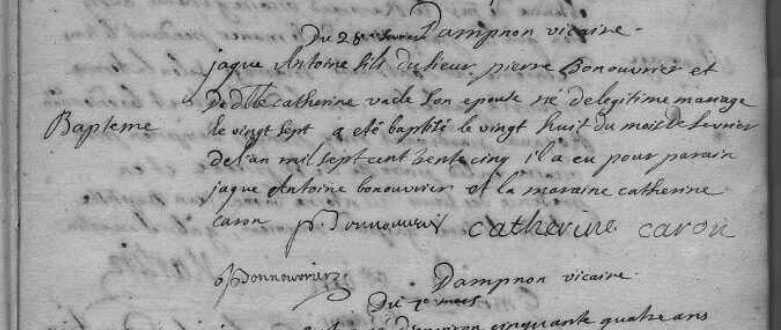 Dampnon vicaire.
Du 28e fevrier
jaque Antoine fils du sieur pierre Bonouvrier et
de dlle catherine vacle son epouse né de legitime mariage
Bapteme
le vingt sept a eté baptisé le vingt huit du mois de fevrier
de l'an mil sept cent trente cinq il a eu pour parain
jaque Antoine bonouvrier et la maraine catherine
caron p. Bonnouvrier catherine caron
Bonnouvrier Dampnon vicaire.
Du mars
d'environ cinquante quatre ans